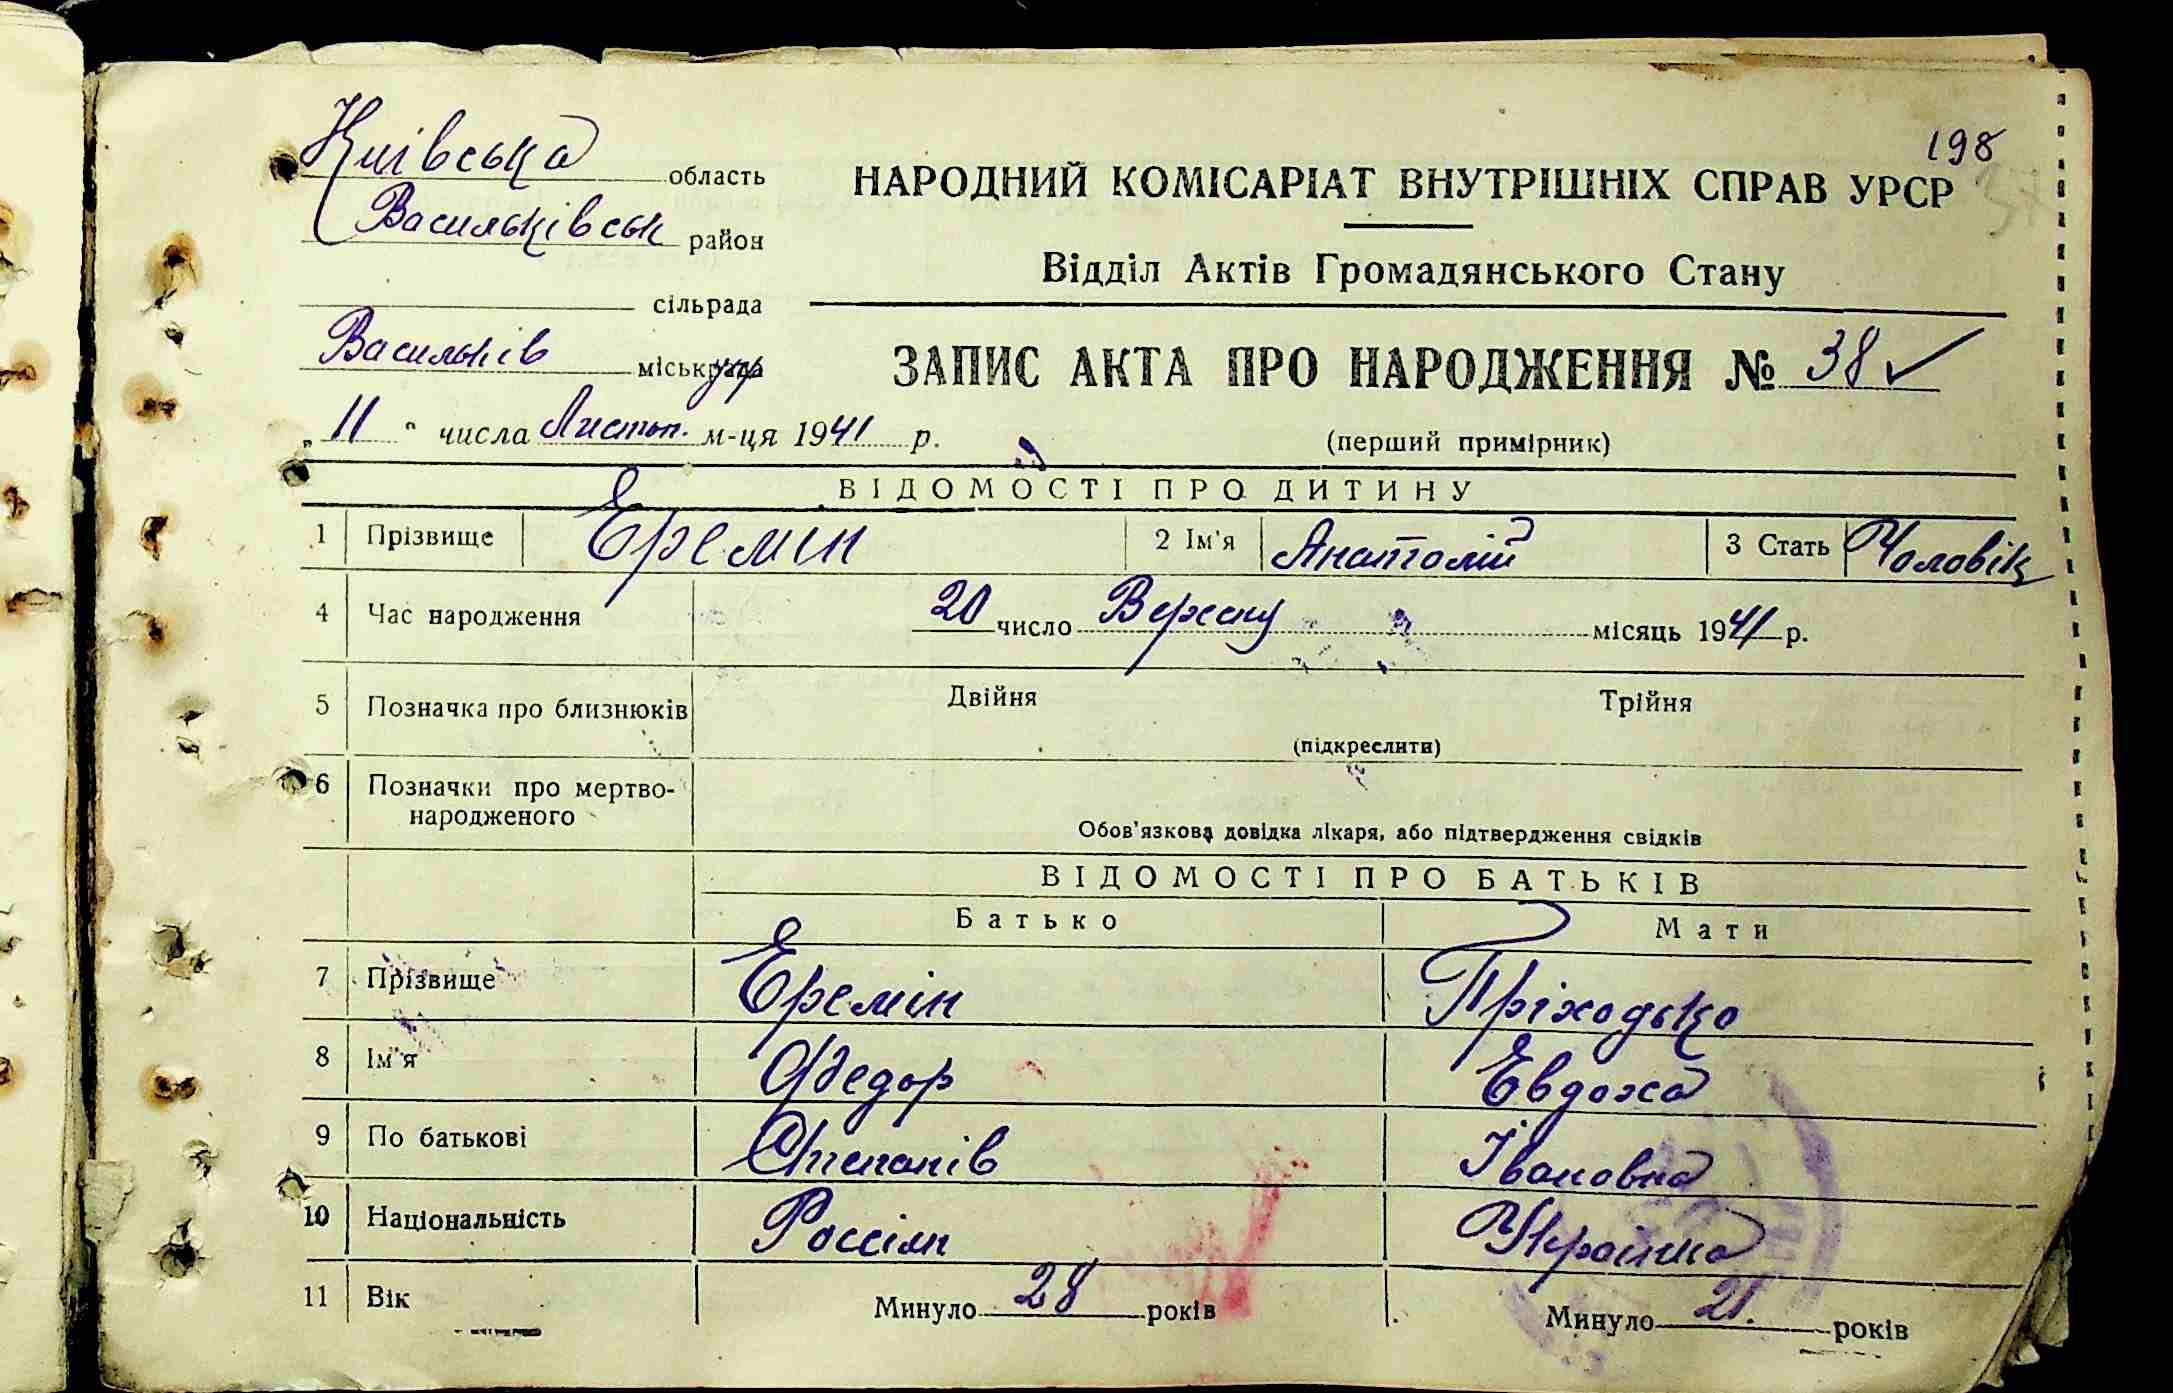 198
Київська область
НАРОДНИЙ КОМІСАРІАТ ВНУТРІШНІХ СПРАВ УРСР
Васильківськ район
Відділ Актів Громадянського Стану
сільрада
Васильків міськрада
ЗАПИС АКТА ПРО НАРОДЖЕННЯ № 38 ✓
„11“ числа Листоп. м-ця 1941 р.
(перший примірник)
ВІДОМОСТІ ПРО ДИТИНУ
1 Прізвище Еремин 2 Ім'я Анатолій 3 Стать Чоловік
4 Час народження 20 число Вересну місяць 1941 р.
5 Позначка про близнюків Двійня Трійня
(підкреслити)
6 Позначки про мертво-
народженого
Обов'язкова довідка лікаря, або підтвердження свідків
ВІДОМОСТІ ПРО БАТЬКІВ
Батько Мати
7 Прізвище Еремін Пріходько
8 Ім'я Федор Евдоха
9 По батькові Степанів Івановна
10 Національність Россіян Украінка
11 Вік Минуло 28 років Минуло 21. років